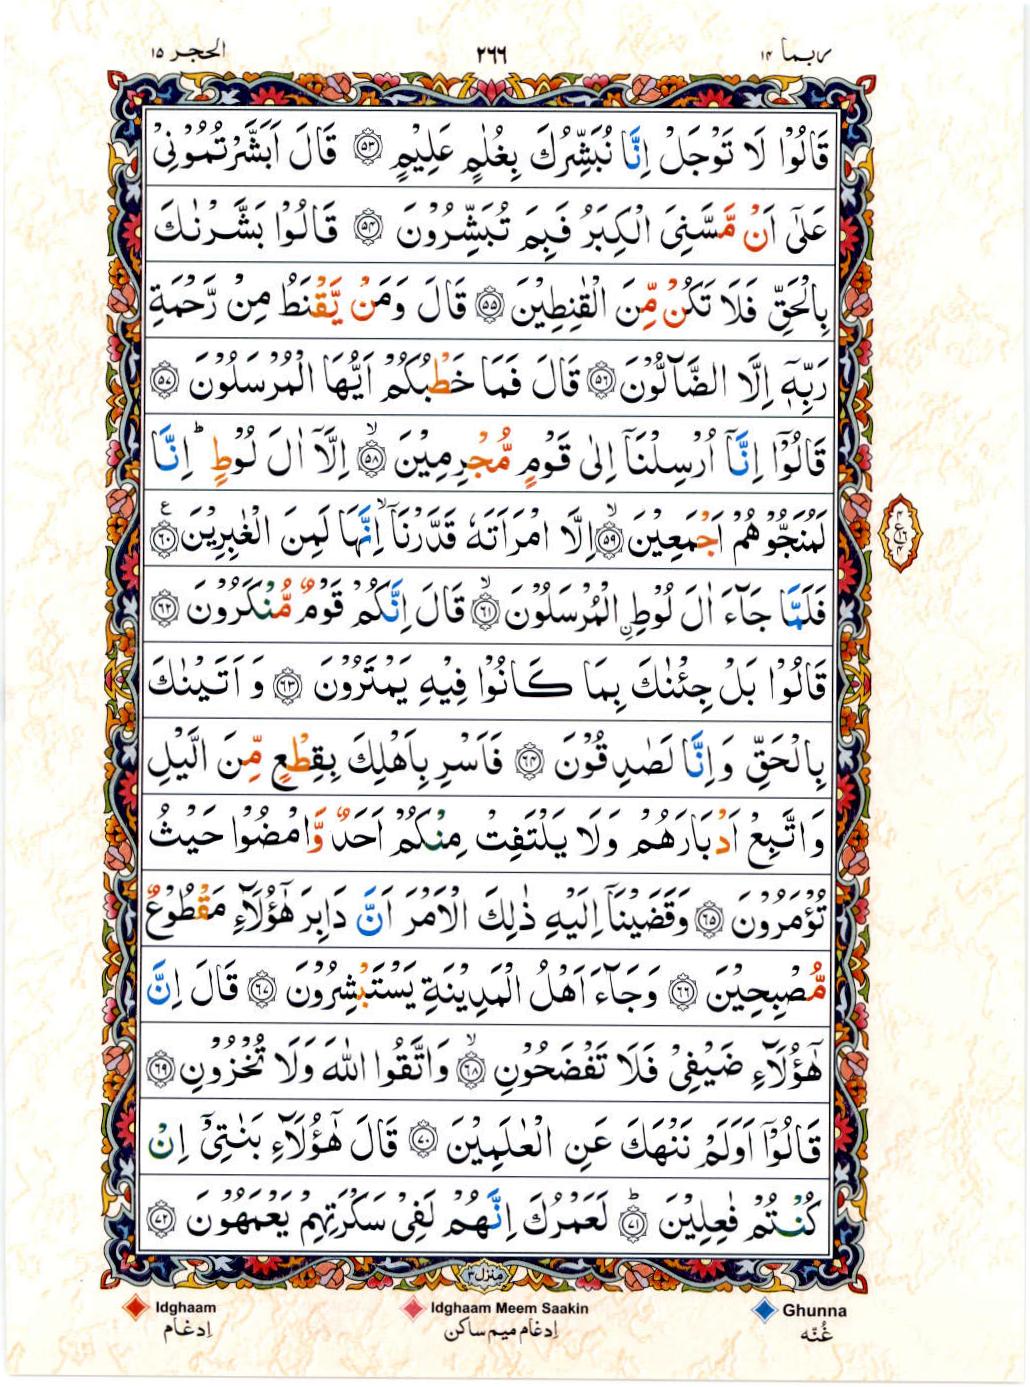 ربما ۱۴
۲۶۶
الحجر ۱۵
قَالُوْا لَا تَوْجَلْ اِنَّا نُبَشِّرُكَ بِغُلٰمٍ عَلِيْمٍ ۵۳ قَالَ اَبَشَّرْتُمُوْنِیْ
عَلٰٓی اَنْ مَّسَّنِیَ الْكِبَرُ فَبِمَ تُبَشِّرُوْنَ ۵۴ قَالُوْا بَشَّرْنٰكَ
بِالْحَقِّ فَلَا تَكُنْ مِّنَ الْقٰنِطِيْنَ ۵۵ قَالَ وَمَنْ يَّقْنَطُ مِنْ رَّحْمَةِ
رَبِّهٖٓ اِلَّا الضَّآلُّوْنَ ۵۶ قَالَ فَمَا خَطْبُكُمْ اَيُّهَا الْمُرْسَلُوْنَ ۵۷
قَالُوْٓا اِنَّآ اُرْسِلْنَآ اِلٰی قَوْمٍ مُّجْرِمِيْنَ ۙ۵۸ اِلَّآ اٰلَ لُوْطٍ ؕ اِنَّا
لَمُنَجُّوْهُمْ اَجْمَعِيْنَ ۙ۵۹ اِلَّا امْرَاَتَهٗ قَدَّرْنَآ ۙ اِنَّهَا لَمِنَ الْغٰبِرِيْنَ ۶۰ ع
فَلَمَّا جَآءَ اٰلَ لُوْطِ ۨالْمُرْسَلُوْنَ ۙ۶۱ قَالَ اِنَّكُمْ قَوْمٌ مُّنْكَرُوْنَ ۶۲
قَالُوْا بَلْ جِئْنٰكَ بِمَا كَانُوْا فِيْهِ يَمْتَرُوْنَ ۶۳ وَ اَتَيْنٰكَ
بِالْحَقِّ وَاِنَّا لَصٰدِقُوْنَ ۶۴ فَاَسْرِ بِاَهْلِكَ بِقِطْعٍ مِّنَ الَّيْلِ
وَاتَّبِعْ اَدْبَارَهُمْ وَلَا يَلْتَفِتْ مِنْكُمْ اَحَدٌ وَّامْضُوْا حَيْثُ
تُؤْمَرُوْنَ ۶۵ وَقَضَيْنَآ اِلَيْهِ ذٰلِكَ الْاَمْرَ اَنَّ دَابِرَ هٰٓؤُلَآءِ مَقْطُوْعٌ
مُّصْبِحِيْنَ ۶۶ وَجَآءَ اَهْلُ الْمَدِيْنَةِ يَسْتَبْشِرُوْنَ ۶۷ قَالَ اِنَّ
هٰٓؤُلَآءِ ضَيْفِیْ فَلَا تَفْضَحُوْنِ ۙ۶۸ وَاتَّقُوا اللّٰهَ وَلَا تُخْزُوْنِ ۶۹
قَالُوْٓا اَوَلَمْ نَنْهَكَ عَنِ الْعٰلَمِيْنَ ۷۰ قَالَ هٰٓؤُلَآءِ بَنٰتِیْٓ اِنْ
كُنْتُمْ فٰعِلِيْنَ ؕ۷۱ لَعَمْرُكَ اِنَّهُمْ لَفِیْ سَكْرَتِهِمْ يَعْمَهُوْنَ ۷۲
منزل ۳
Idghaam
Idghaam Meem Saakin
Ghunna
اِدغام
اِدغام میم ساکن
غُنّه